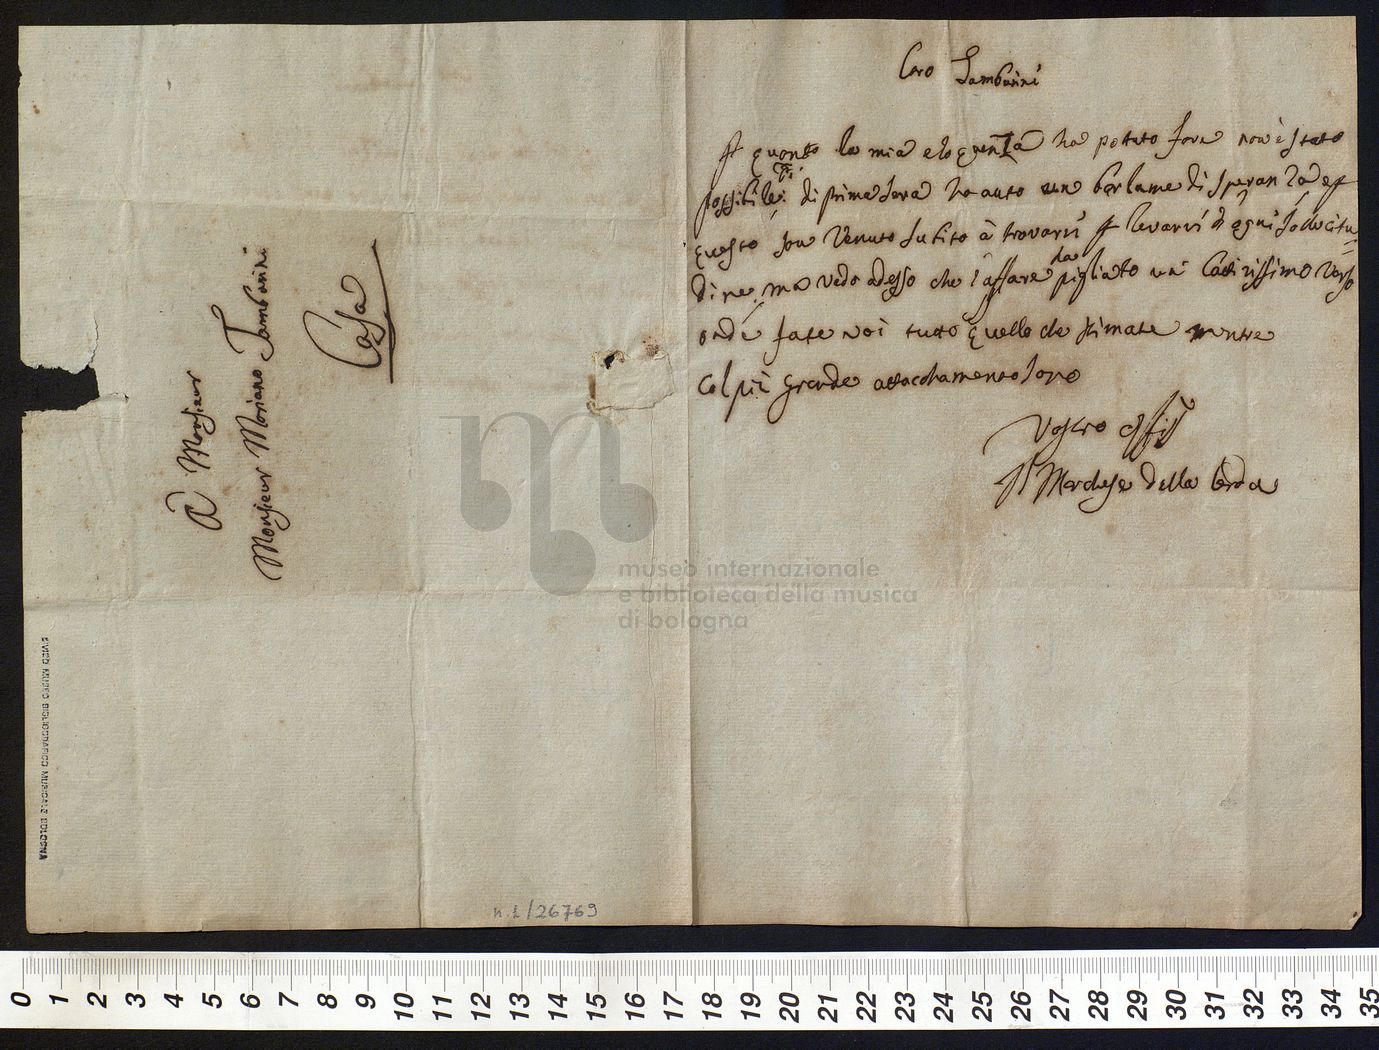 Caro Tamburini
P quanto la mia eloquenza ha potuto fare non è stato
possibile: Di prima sera ho auto un barlume di speranza e p
questo son venuto subito à trovarvi p levarvi d ogni sollecitu=
dine, ma vedo adesso che l'affare da pigliato un Cattivissimo verso
onde fate voi tutto quello che stimate mentre
col più grande attaccohamento sono
Vostro
Il Marchese della Cerda
A Monsieur
Monsieur Mariano Tamburini
Casa
CIVICO MUSEO BIBLIOGRAFICO MUSICALE BOLOGNA
n. 1/26769
museo internazionale
e biblioteca della musica
di bologna
0 1 2 3 4 5 6 7 8 9 10 11 12 13 14 15 16 17 18 19 20 21 22 23 24 25 26 27 28 29 30 31 32 33 34 35